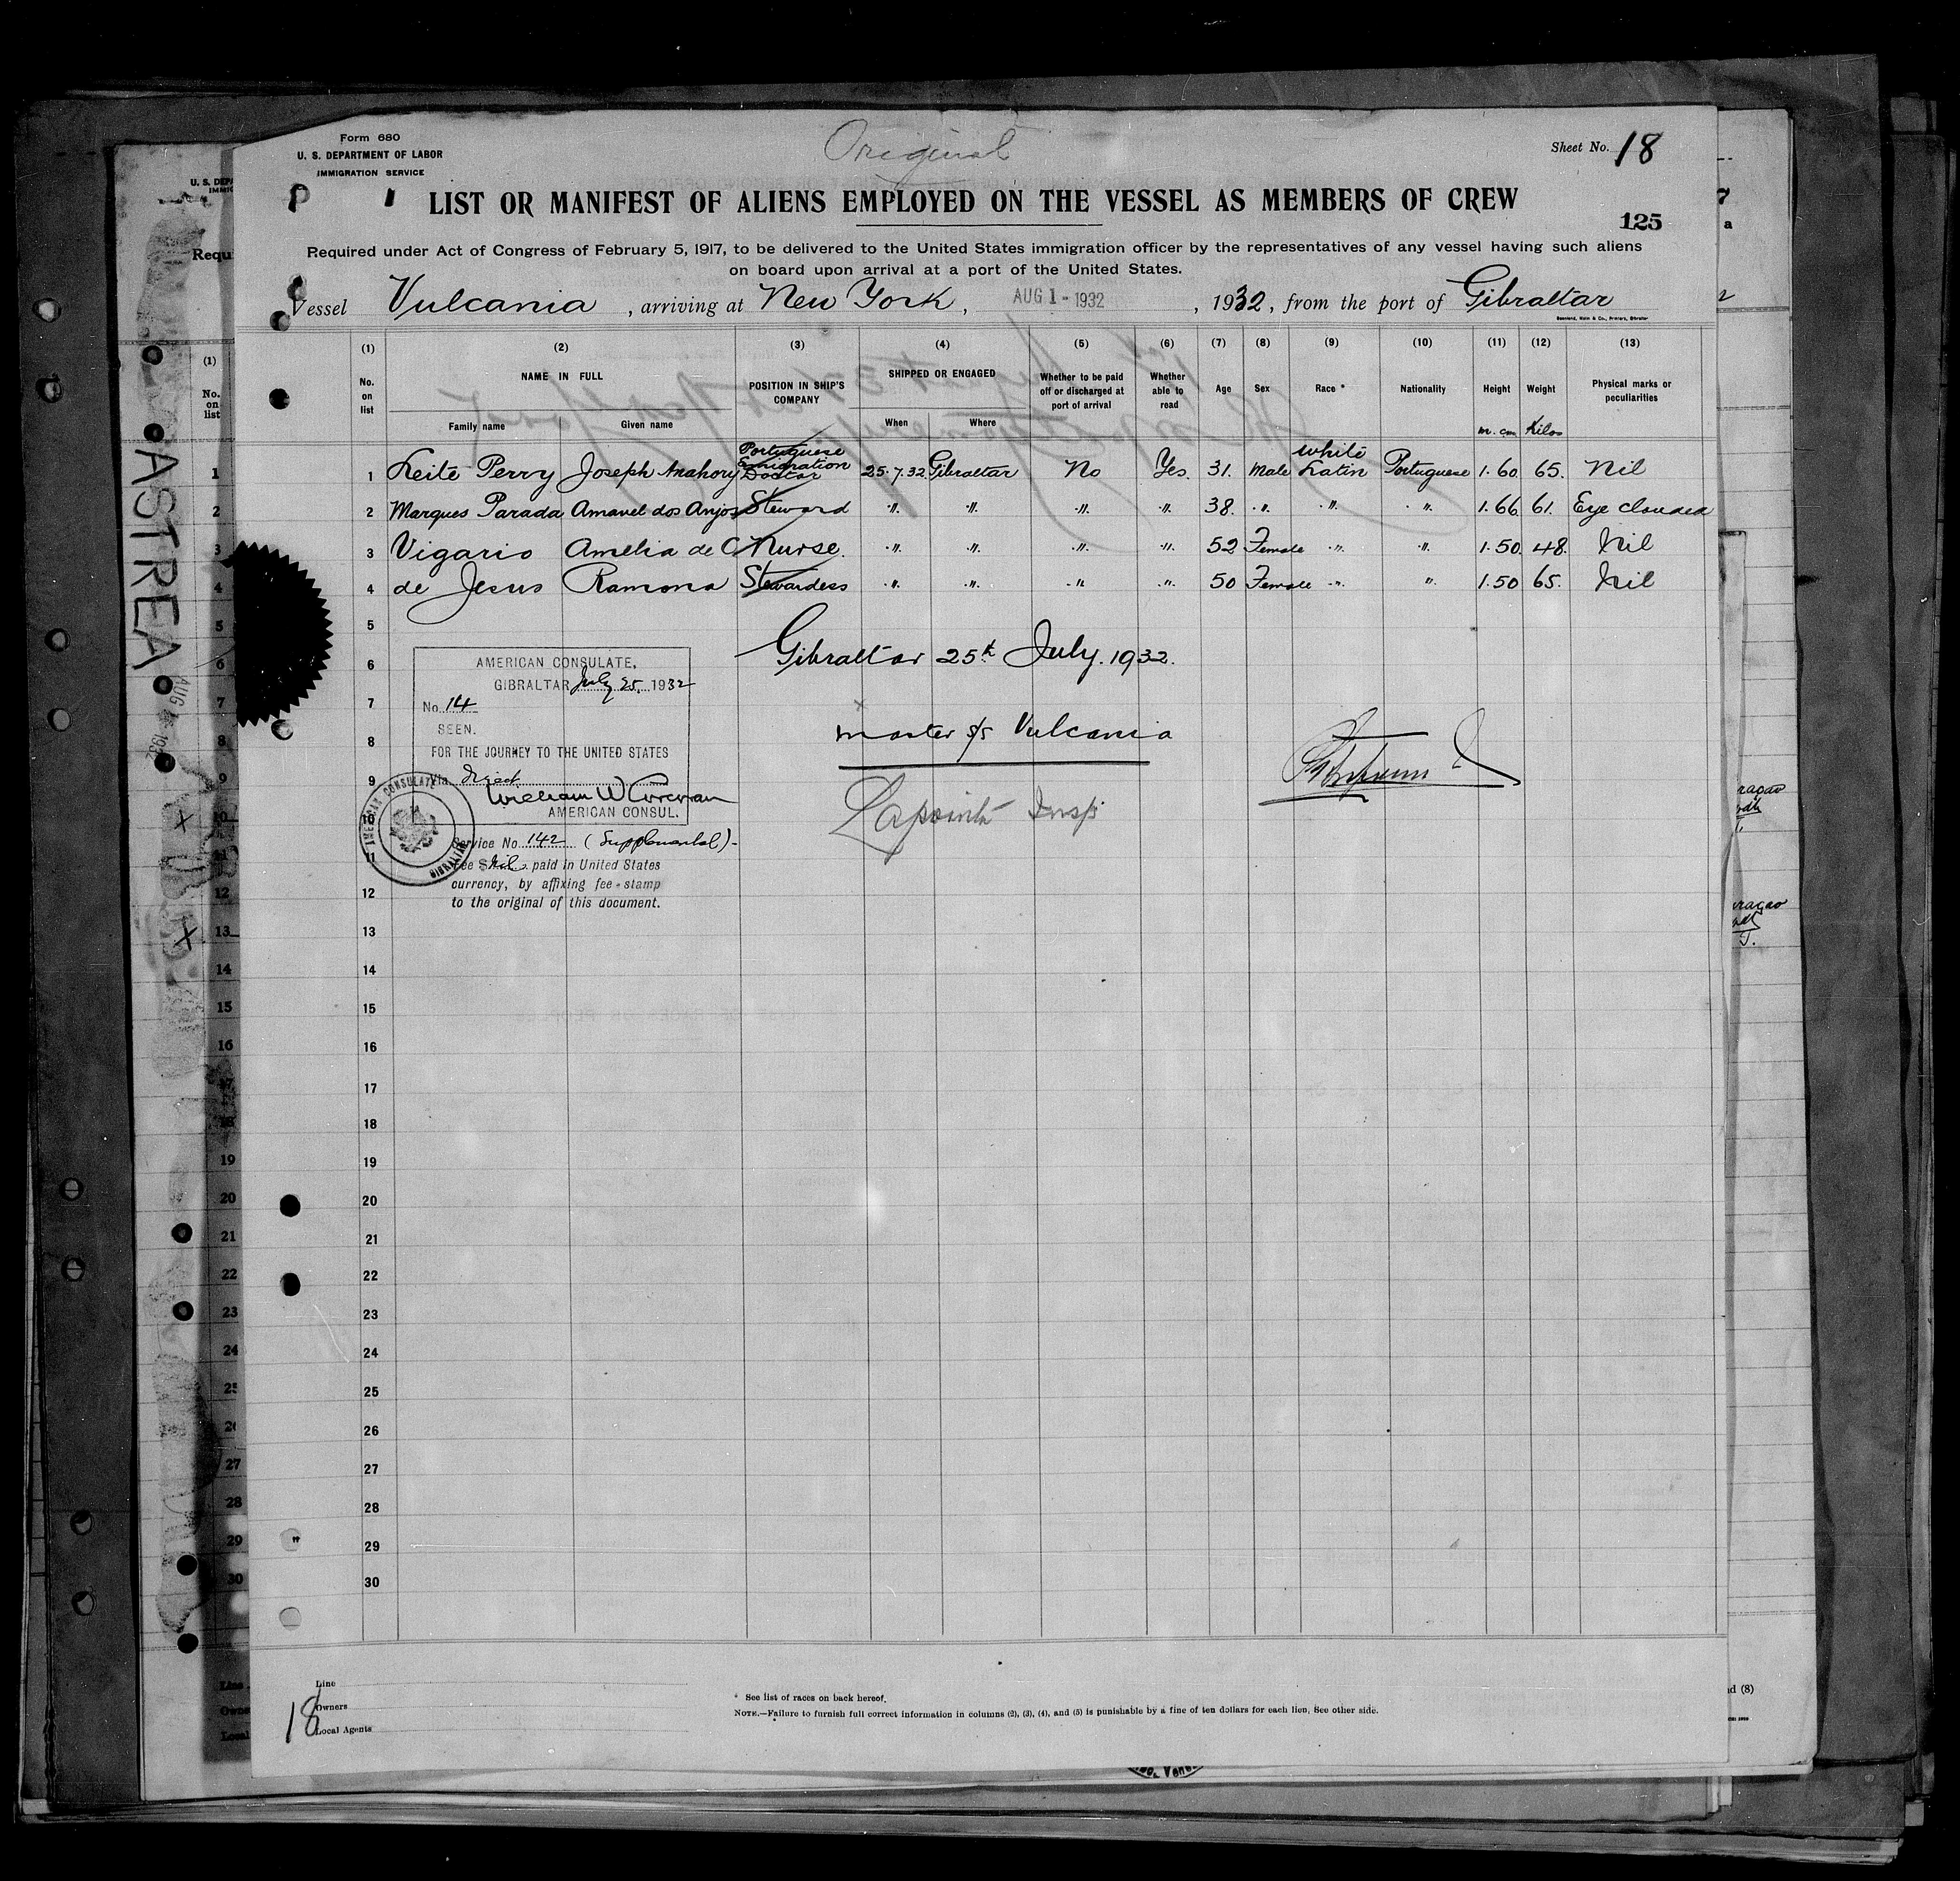 Original
Form 680
U. S. DEPARTMENT OF LABOR
IMMIGRATION SERVICE
Sheet No. 18
LIST OR MANIFEST OF ALIENS EMPLOYED ON THE VESSEL AS MEMBERS OF CREW
125
Required under Act of Congress of February 5, 1917, to be delivered to the United States immigration officer by the representatives of any vessel having such aliens
on board upon arrival at a port of the United States.
Vessel Vulcania, arriving at New York, AUG 1 - 1932, 1932, from the port of Gibraltar
(1) (2) (3) (4) (5) (6) (7) (8) (9) (10) (11) (12) (13)
No. on list NAME IN FULL Family name Given name POSITION IN SHIP'S COMPANY SHIPPED OR ENGAGED When Where Whether to be paid off or discharged at port of arrival Whether able to read Age Sex Race * Nationality Height Weight Physical marks or peculiarities
m. cm Kilos
1 Leite Perry Joseph Anahory Portuguese Emigration Doctor 25.7.32 Gibraltar No Yes. 31. Male White Latin Portuguese 1.60. 65. Nil
2 Marques Parada Amavel dos Anjos Steward " " " " 38. " " " 1.66 61. Eye clouded
3 Vigario Amelia de C Nurse. " " " " 52 Female " " 1.50. 48. Nil
4 de Jesus Ramona Stewardess " " " " 50 Female " " 1.50 65. Nil
5
6
7
8
9
10
11
12
13
14
15
16
17
18
19
20
21
22
23
24
25
26
27
28
29
30
Gibraltar 25th July. 1932.
master s/s Vulcania
Lapointe Insp
AMERICAN CONSULATE,
GIBRALTAR July 25, 1932
No. 14
SEEN.
FOR THE JOURNEY TO THE UNITED STATES
Via direct
William W Corcoran
AMERICAN CONSUL.
AMERICAN CONSULATE GIBRALTAR
Service No 142 (Supplemental)-
Fee $ Nil paid in United States
currency, by affixing fee-stamp
to the original of this document.
Line
Owners
Local Agents
18
* See list of races on back hereof.
NOTE.—Failure to furnish full correct information in columns (2), (3), (4), and (5) is punishable by a fine of ten dollars for each lien. See other side.
ASTREA
AUG 1 1932